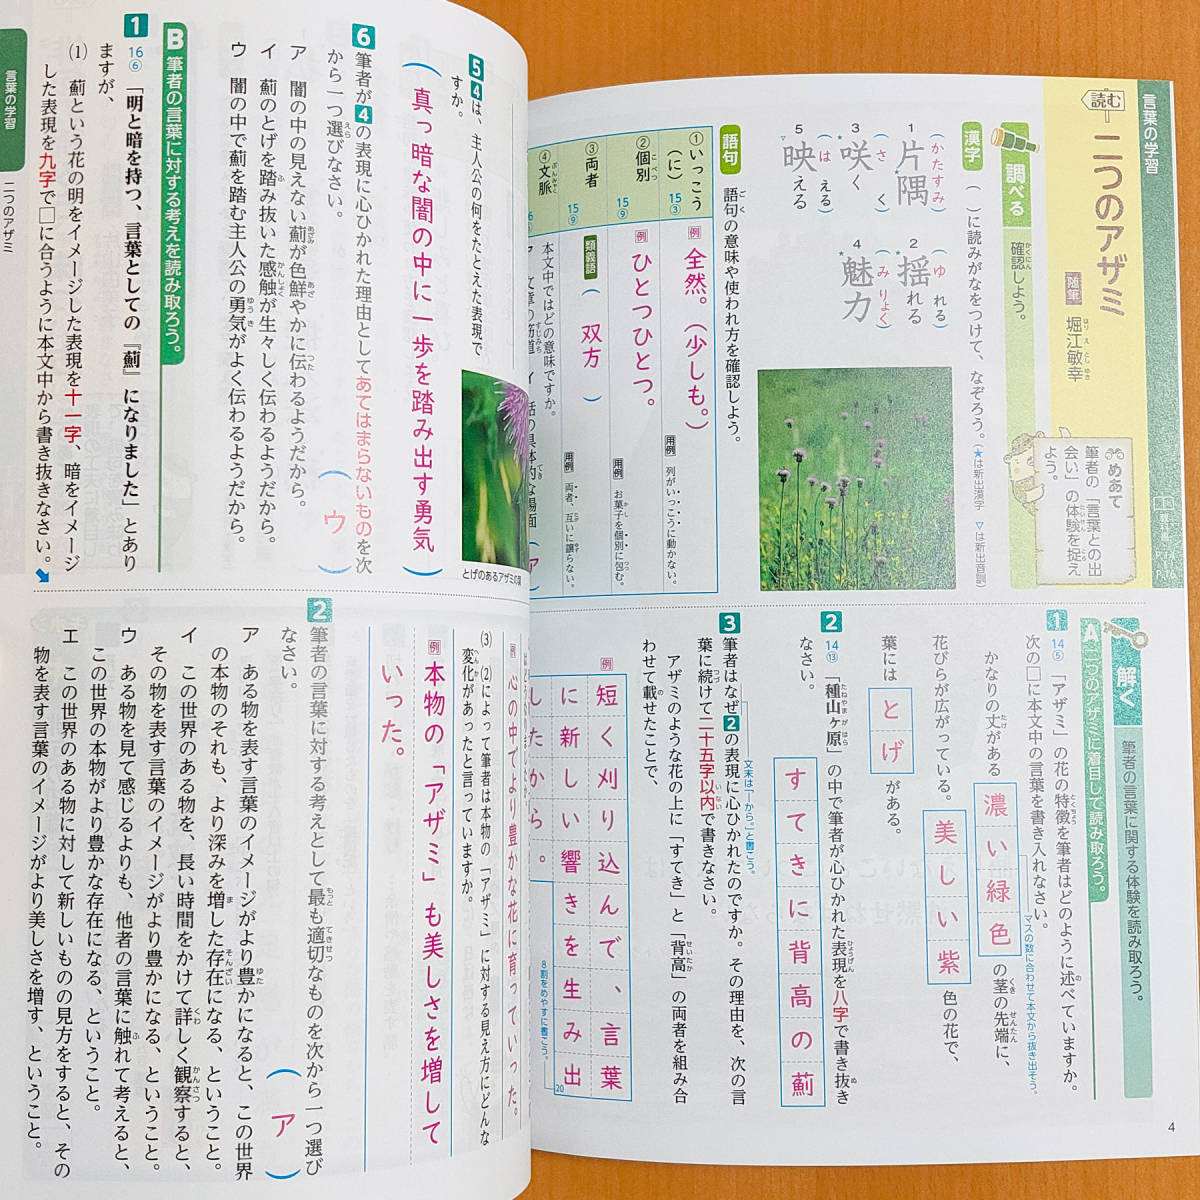 言葉の学習
読む
二つのアザミ
随筆
堀江敏幸
めあて
筆者の「言葉との出
会い」の体験を捉え
よう。
調べる
確認しよう。
漢字
（　）に読みがなをつけて、なぞろう。（★は新出漢字　▽は新出音訓）
1 片隅（かたすみ）
2 揺れる（ゆれる）
3 咲く（さく）
4 魅力（みりょく）
5 映える（はえる）
語句
語句の意味や使われ方を確認しよう。
①いっこう（に） 15③
例 全然。（少しも。）
用例 列がいっこうに動かない。
②個別 15⑨
例 ひとつひとつ。
用例 お菓子を個別に包む。
③両者 15⑨
類義語（双方）
用例 両者、互いに譲らない。
④文脈
本文中ではどの意味ですか。
ア 文章の筋道 イ 話の具体的な場面
（ア）
解く
筆者の言葉に関する体験を読み取ろう。
A 二つのアザミに着目して読み取ろう。
1 14⑤ 「アザミ」の花の特徴を筆者はどのように述べていますか。
次の□に本文中の言葉を書き入れなさい。
マスの数に合わせて本文から抜き出そう。
かなりの丈がある濃い緑色の茎の先端に、
花びらが広がっている。美しい紫色の花で、
葉にはとげがある。
2 14⑬ 「種山ヶ原」の中で筆者が心ひかれた表現を八字で書き抜き
なさい。
すてきに背高の薊
3 筆者はなぜ2の表現に心ひかれたのですか。その理由を、次の言
葉に続けて二十五字以内で書きなさい。
文末は「―から。」と書こう。
アザミのような花の上に「すてき」と「背高」の両者を組み合
わせて載せたことで、
例 短く刈り込んで、言葉
に新しい響きを生み出
したから。
20
8割をめやすに書こう。
4
とげのあるアザミの葉
5 4は、主人公の何をたとえた表現で
すか。
（真っ暗な闇の中に一歩を踏み出す勇気）
6 筆者が4の表現に心ひかれた理由としてあてはまらないものを次
から一つ選びなさい。
ア 闇の中の見えない薊が色鮮やかに伝わるようだから。
イ 薊のとげを踏み抜いた感触が生々しく伝わるようだから。
ウ 闇の中で薊を踏む主人公の勇気がよく伝わるようだから。
（ウ）
B 筆者の言葉に対する考えを読み取ろう。
1 16⑥ 「明と暗を持つ、言葉としての『薊』になりました」とあり
ますが、
(1) 薊という花の明をイメージした表現を十一字、暗をイメージ
した表現を九字で□に合うように本文中から書き抜きなさい。
言葉の学習
二つのアザミ
例 心の中でより豊かな花に育っていった。
(3) (2)によって筆者は本物の「アザミ」に対する見え方にどんな
変化があったと言っていますか。
例 本物の「アザミ」も美しさを増して
いった。
2 筆者の言葉に対する考えとして最も適切なものを次から一つ選び
なさい。
（ア）
ア ある物を表す言葉のイメージがより豊かになると、この世界
の本物のそれも、より深みを増した存在になる、ということ。
イ この世界のある物を、長い時間をかけて詳しく観察すると、
その物を表す言葉のイメージがより豊かになる、ということ。
ウ ある物を見て感じるよりも、他者の言葉に触れて考えると、
この世界の本物がより豊かな存在になる、ということ。
エ この世界のある物に対して新しいものの見方をすると、その
物を表す言葉のイメージがより美しさを増す、ということ。